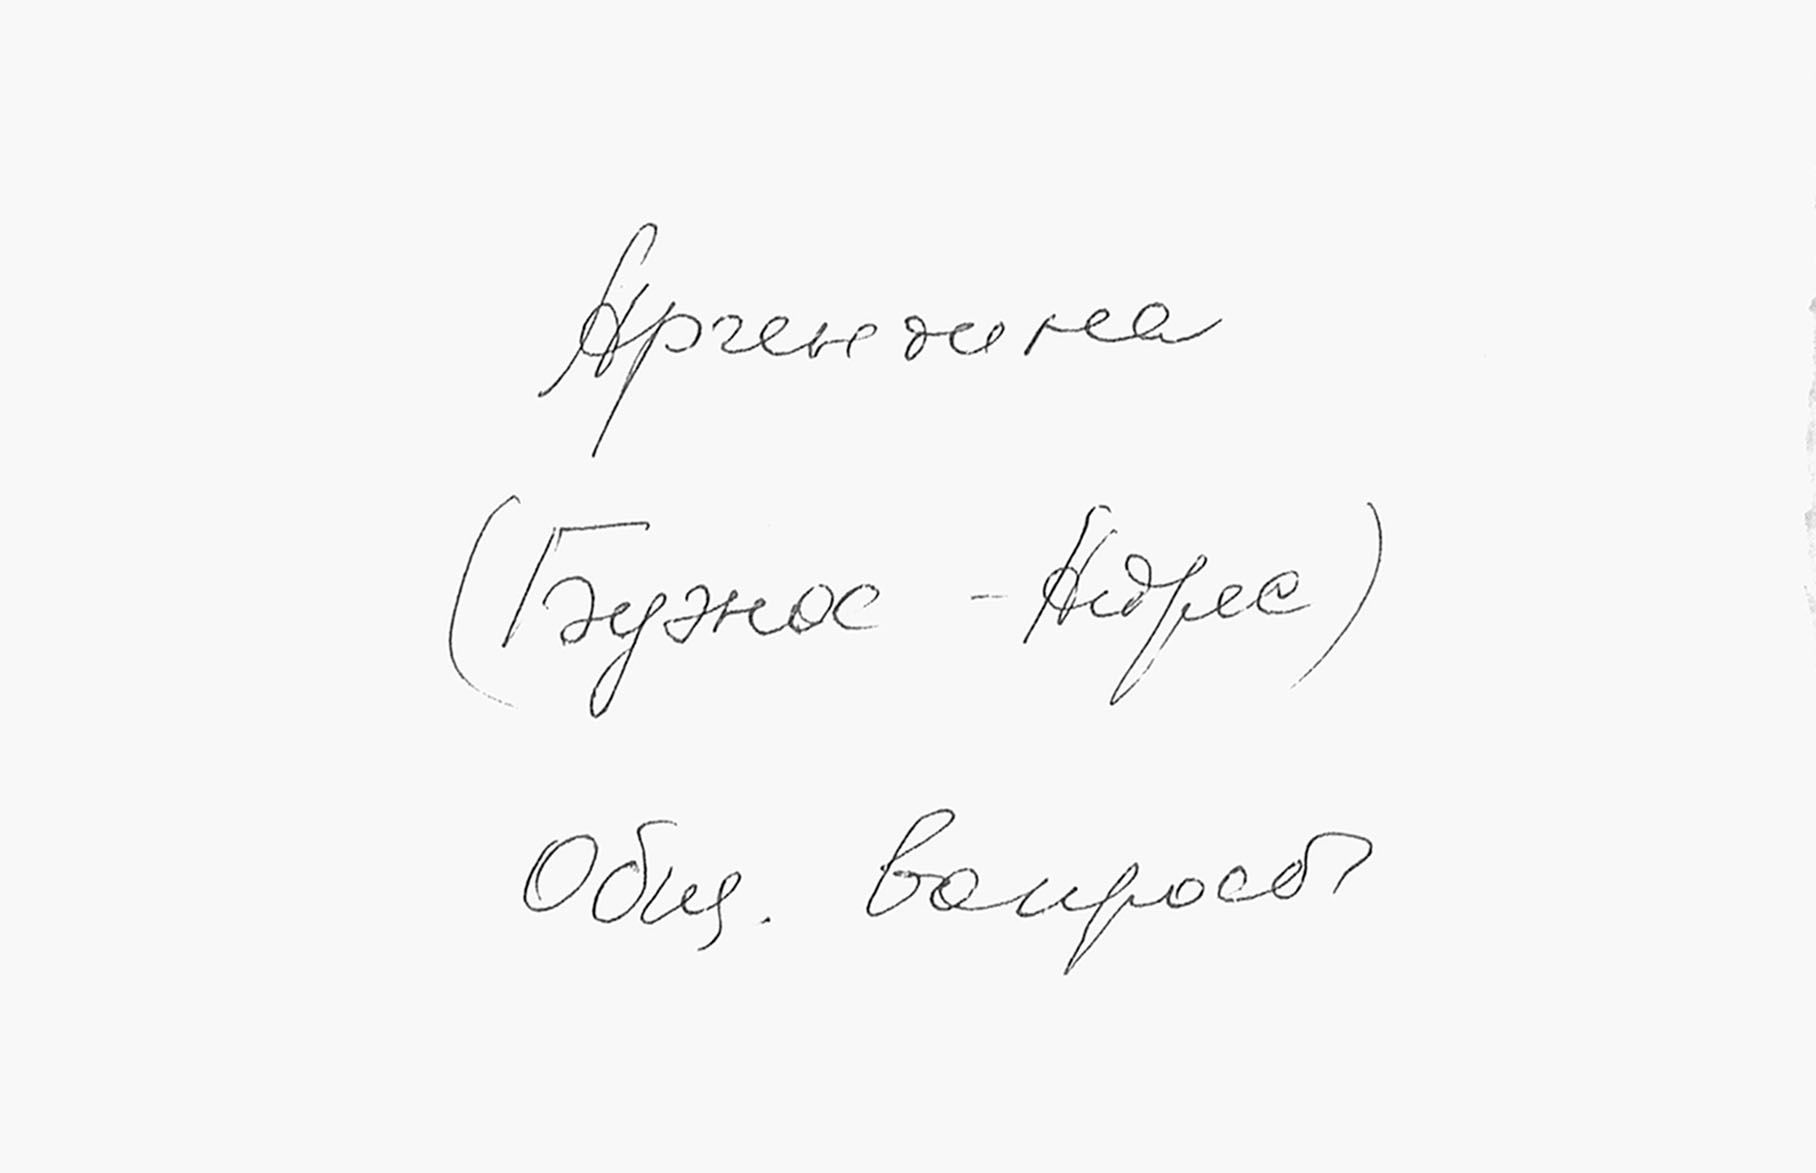 Аргентина
(Буэнос - Айрес)
Общ. вопросы